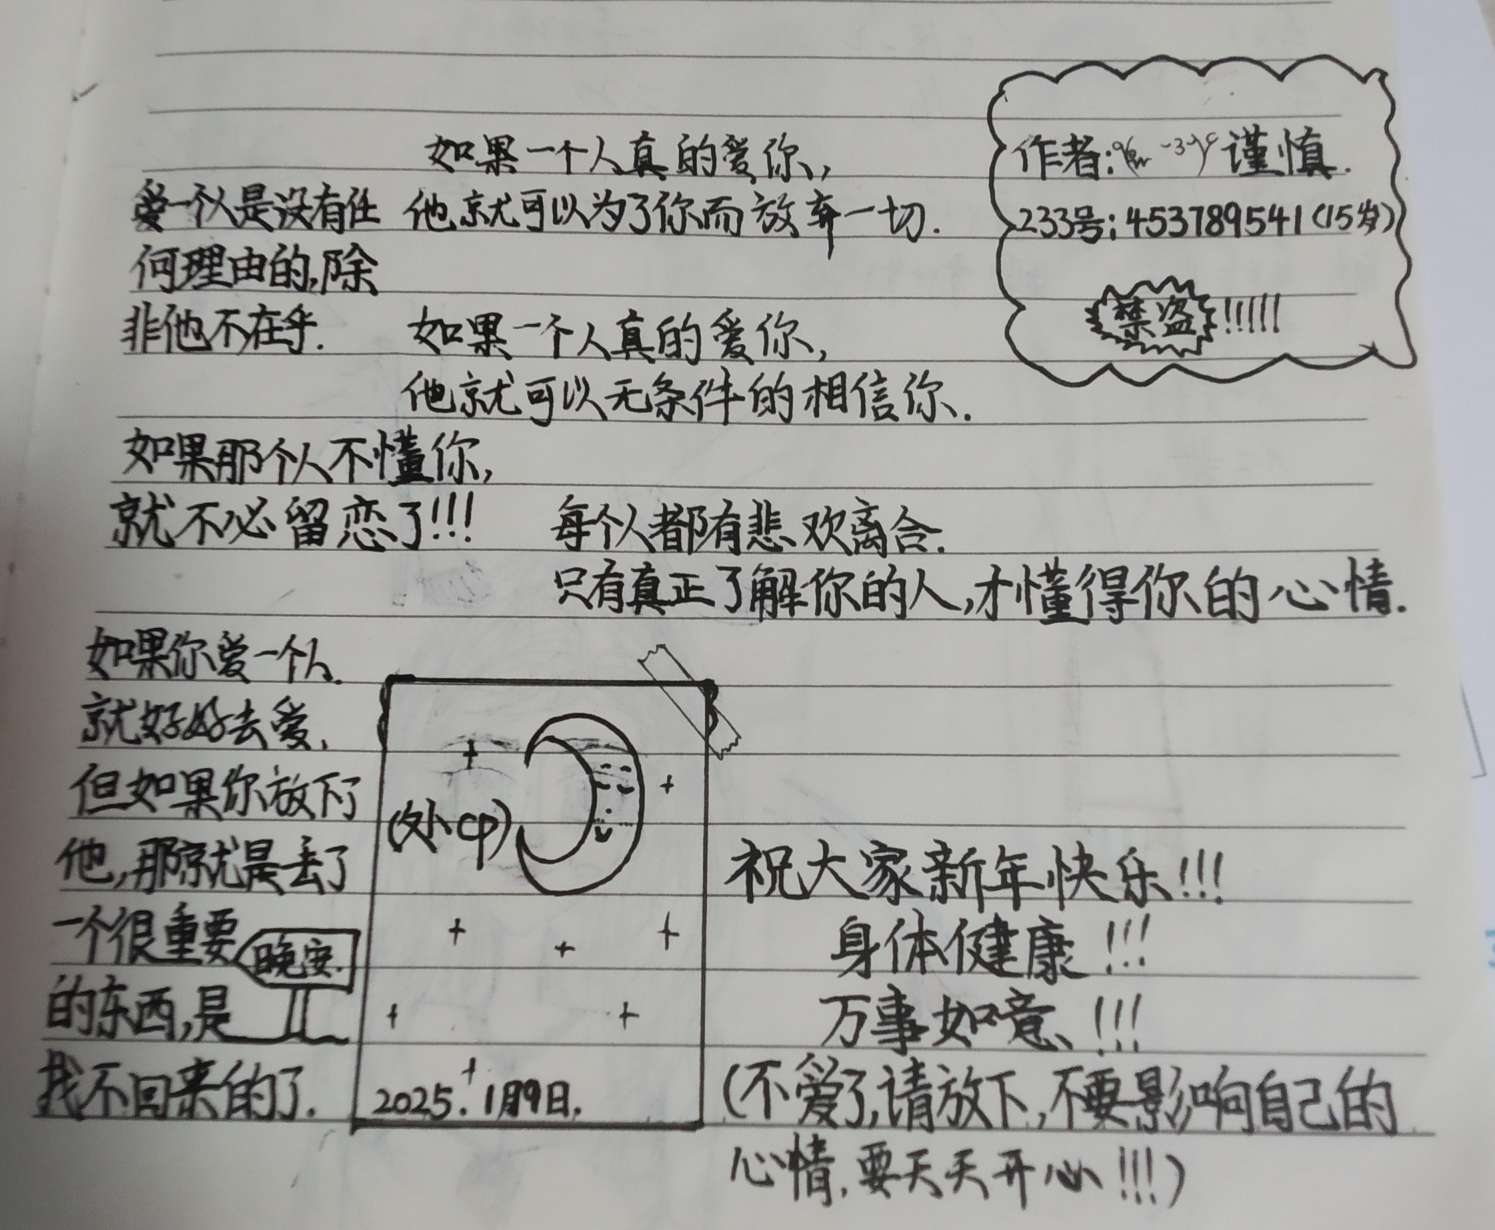 如果一个人真的爱你,
他就可以为了你而放弃一切.
作者: 谨慎.
233号:453789541(15岁)
禁盗!!!!!
爱一个人是没有任
何理由的,除
非他不在乎.
如果一个人真的爱你,
他就可以无条件的相信你.
如果那个人不懂你,
就不必留恋了!!!
每个人都有悲欢离合.
只有真正了解你的人,才懂得你的心情.
如果你爱一个人.
就好好去爱,
但如果你放下了
他,那就是丢了
一个很重要
的东西,是
找不回来的了.
晚安.
(外cp)
2025.1月9日.
祝大家新年快乐!!!
身体健康!!!
万事如意、!!!
(不爱了,请放下,不要影响自己的
心情,要天天开心!!!)